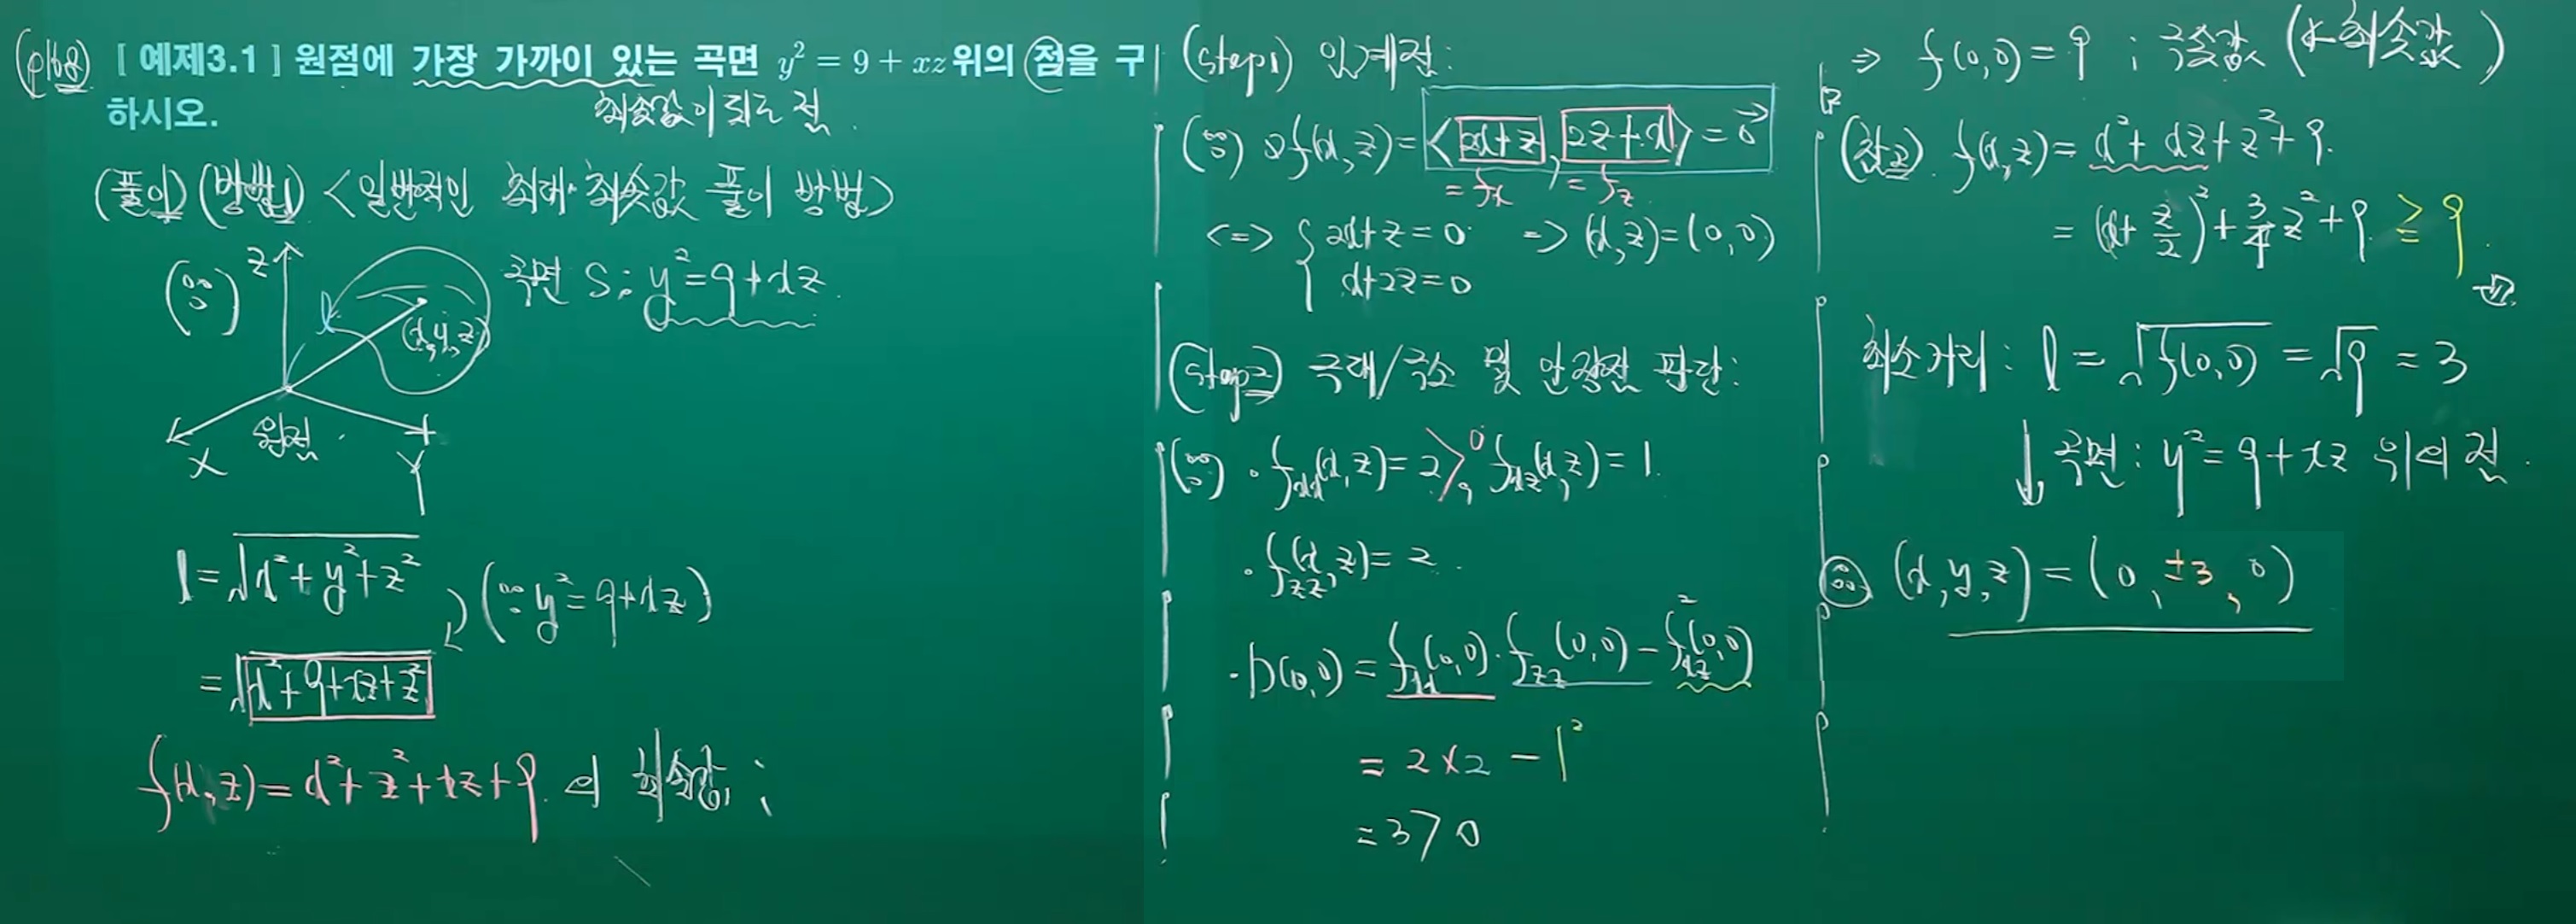 (p168) [ 예제3.1 ] 원점에 가장 가까이 있는 곡면 y² = 9 + xz 위의 점을 구
하시오.
최솟값이 되는 점.
(풀이) (방법1) <일반적인 최대·최솟값 풀이 방법>
(∵) Z 곡면 S: y² = 9+xz.
l (x,y,z)
원점.
X Y
l = √(x²+y²+z²)
(∵ y² = 9+xz)
= √(x²+9+xz+z²)
f(x,z) = x²+z²+xz+9 의 최솟값;
(step1) 임계점:
(∵) ∇f(x,z) = <2x+z, 2z+x> = 0⃗
= fx = fz
<=> { 2x+z=0 => (x,z)=(0,0)
x+2z=0
(step2) 극대/극소 및 안장점 판단:
(∵) · fxx(x,z) = 2 > 0, fxz(x,z) = 1.
· fzz(x,z) = 2.
· D(0,0) = fxx(0,0)·fzz(0,0) − fxz²(0,0)
= 2×2 − 1²
= 3 > 0
⇒ f(0,0) = 9 ; 극솟값 (≠최솟값)
(참고) f(x,z) = x²+xz+z²+9.
= (x+z/2)² + 3/4 z² + 9 ≥ 9.
최소거리: l = √f(0,0) = √9 = 3
↓ 곡면: y² = 9+xz 위의 점.
∴ (x,y,z) = (0, ±3, 0)